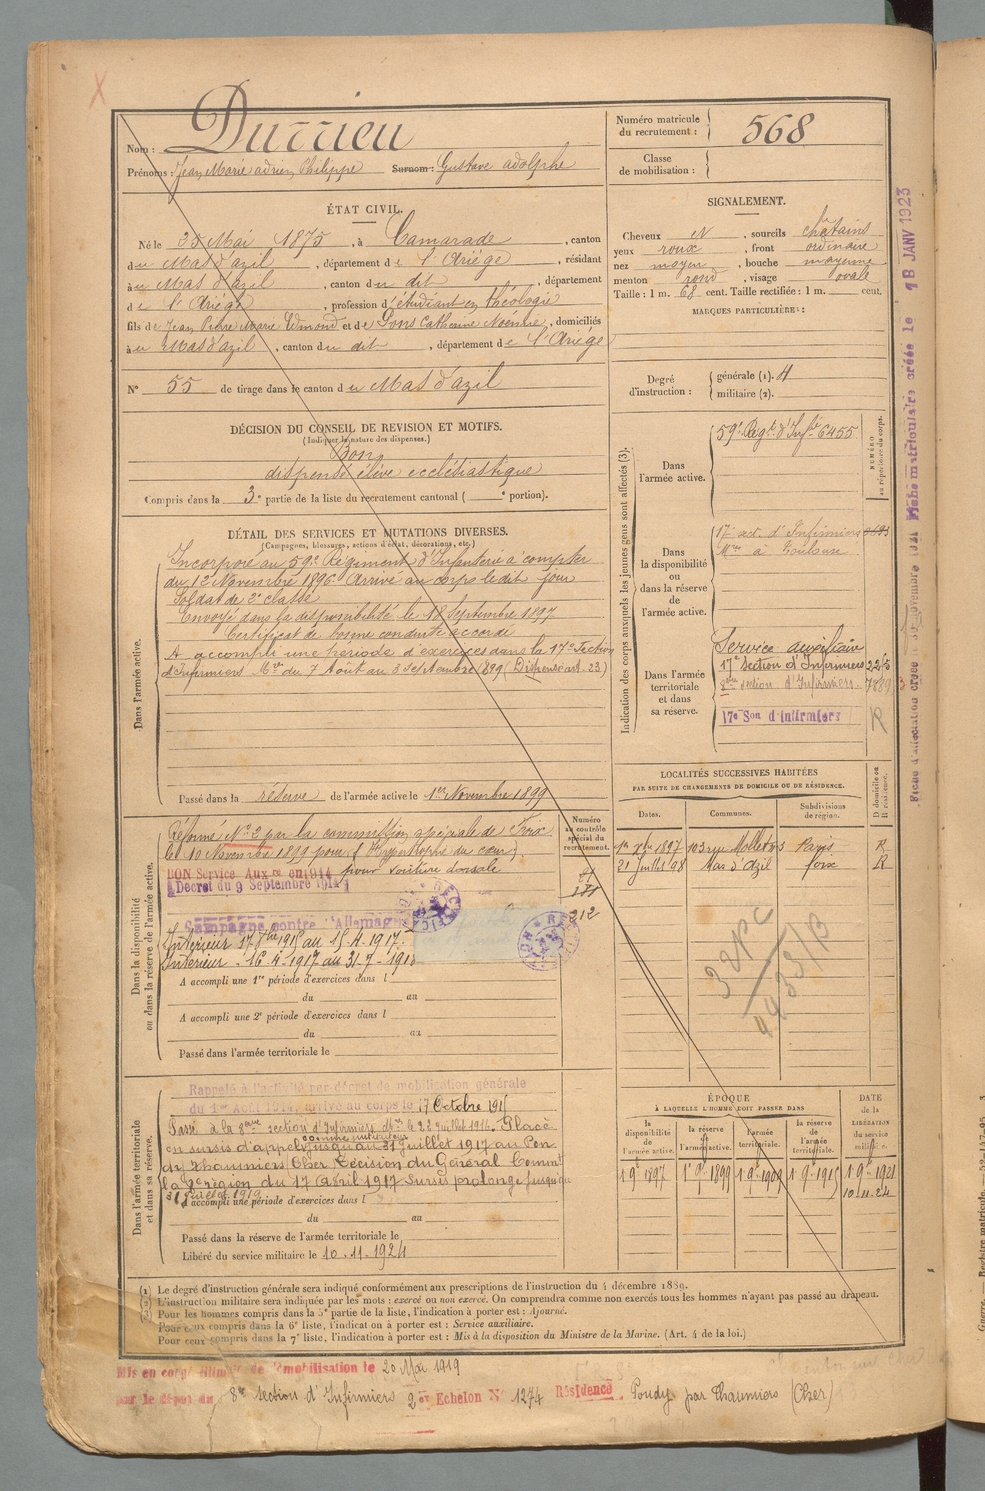 Nom : Durrieu
Prénoms : Jean Marie adrien Philippe Surnom : Gustave adolphe
Numéro matricule du recrutement : 568
Classe de mobilisation :
ÉTAT CIVIL.
Né le 25 Mai 1875, à Camarade, canton
du Mas d'azil, département de l'Ariège, résidant
à u Mas d'azil, canton du dit, département
de l'Ariège, profession d'étudiant en théologie
fils de Jean Pierre Marie Edmond et de Pons Catherine Noémie, domiciliés
à u Mas d'azil, canton du dit, département de l'Ariège
N° 55 de tirage dans le canton du Mas d'azil
SIGNALEMENT.
Cheveux, sourcils châtains
yeux roux, front ordinaire
nez moyen, bouche moyenne
menton rond, visage ovale
Taille : 1 m. 68 cent. Taille rectifiée : 1 m. cent.
MARQUES PARTICULIÈRES :
Degré d'instruction :
générale (1).
militaire (2).
DÉCISION DU CONSEIL DE REVISION ET MOTIFS.
(Indiquer la nature des dispenses.)
Bon
dispensé élève ecclésiastique
Compris dans la 3e partie de la liste du recrutement cantonal ( e portion).
DÉTAIL DES SERVICES ET MUTATIONS DIVERSES.
(Campagnes, blessures, actions d'éclat, décorations, etc.)
Dans l'armée active.
Incorporé au 59e Régiment d'Infanterie à compter
du 12 Novembre 1896. Arrivé au corps le dit jour
Soldat de 2e classe
Envoyé dans la disponibilité le 18 Septembre 1897
Certificat de bonne conduite accordé
A accompli une période d'exercices dans la 17e Section
d'Infirmiers Mres du 7 Août au 3 septembre 1899 (Dispensé art. 23)
Passé dans la réserve de l'armée active le 1er Novembre 1899
Indication des corps auxquels les jeunes gens sont affectés (3).
NUMÉRO au répertoire du corps.
Dans l'armée active.
59e Régt d'Infie 6455
Dans la disponibilité ou dans la réserve de l'armée active.
17e sect. d'Infirmiers
Mres à Toulouse
Dans l'armée territoriale et dans sa réserve.
Service auxiliaire
17e Section d'Infirmiers
8ème section d'Infirmiers
17e Son d'infirmiers R
LOCALITÉS SUCCESSIVES HABITÉES
PAR SUITE DE CHANGEMENTS DE DOMICILE OU DE RÉSIDENCE.
Dates. Communes. Subdivisions de région. D domicile ou R résidence.
1er Xbre 1897 103 rue Paris R
21 Juillet 98 Mas d'Azil foix R
Dans la disponibilité ou dans la réserve de l'armée active.
Numéro au contrôle spécial du recrutement.
Réformé N° 2 par la commission spéciale de Foix
le 10 Novembre 1899 pour (Hypertrophie du cœur)
BON Service Auxre en 1914 pour voussure dorsale
Décret du 9 Septembre 1914
Campagne contre l'Allemagne
Intérieur 17 8bre 1915 au 15.4.1917.
Intérieur - 16.4.1917 au 31-7-1918
212
A accompli une 1re période d'exercices dans l
du au
A accompli une 2e période d'exercices dans l
du au
Passé dans l'armée territoriale le
Dans l'armée territoriale et dans sa réserve.
Rappelé à l'activité par décret de mobilisation générale
du 1er Août 1914, arrivé au corps le 17 Octobre 191
Passé à la 8ème section d'Infirmiers Mres le 22 Juillet 1916. Placé
en sursis d'appel jusqu'au 31 juillet 1917 au Pon-
dy Thaumiers Cher Décision du Général Commt
la 8e région du 17 Avril 1917 Sursis prolongé jusqu'au
31 Juillet 1919
A accompli une période d'exercices dans l
du au
Passé dans la réserve de l'armée territoriale le
Libéré du service militaire le 10.11.1924
ÉPOQUE
À LAQUELLE L'HOMME DOIT PASSER DANS
la disponibilité de l'armée active. la réserve de l'armée active. l'armée territoriale. la réserve de l'armée territoriale.
DATE de la LIBÉRATION du service militaire.
1 9e 1897 1 9e 1899 1 9e 1909 1 9e 1915 1 9e 1921
10.11.24
(1) Le degré d'instruction générale sera indiqué conformément aux prescriptions de l'instruction du 4 décembre 1889.
(2) L'instruction militaire sera indiquée par les mots : exercé ou non exercé. On comprendra comme non exercés tous les hommes n'ayant pas passé au drapeau.
(3) Pour les hommes compris dans la 5e partie de la liste, l'indication à porter est : Ajourné.
Pour ceux compris dans la 6e liste, l'indication à porter est : Service auxiliaire.
Pour ceux compris dans la 7e liste, l'indication à porter est : Mis à la disposition du Ministre de la Marine. (Art. 4 de la loi.)
Mis en congé illimité de démobilisation le 20 Mai 1919
par le dépôt du 8e section d'Infirmiers 2e Echelon N° 1274 Résidence Pondy par Thaumiers (Cher)
Fiche matriculaire créée le 18 JANV 1923